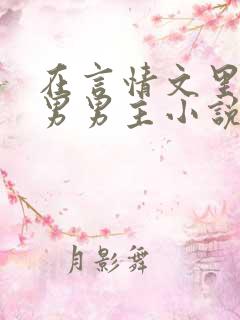 在言情文里
男男主小说
月影舞